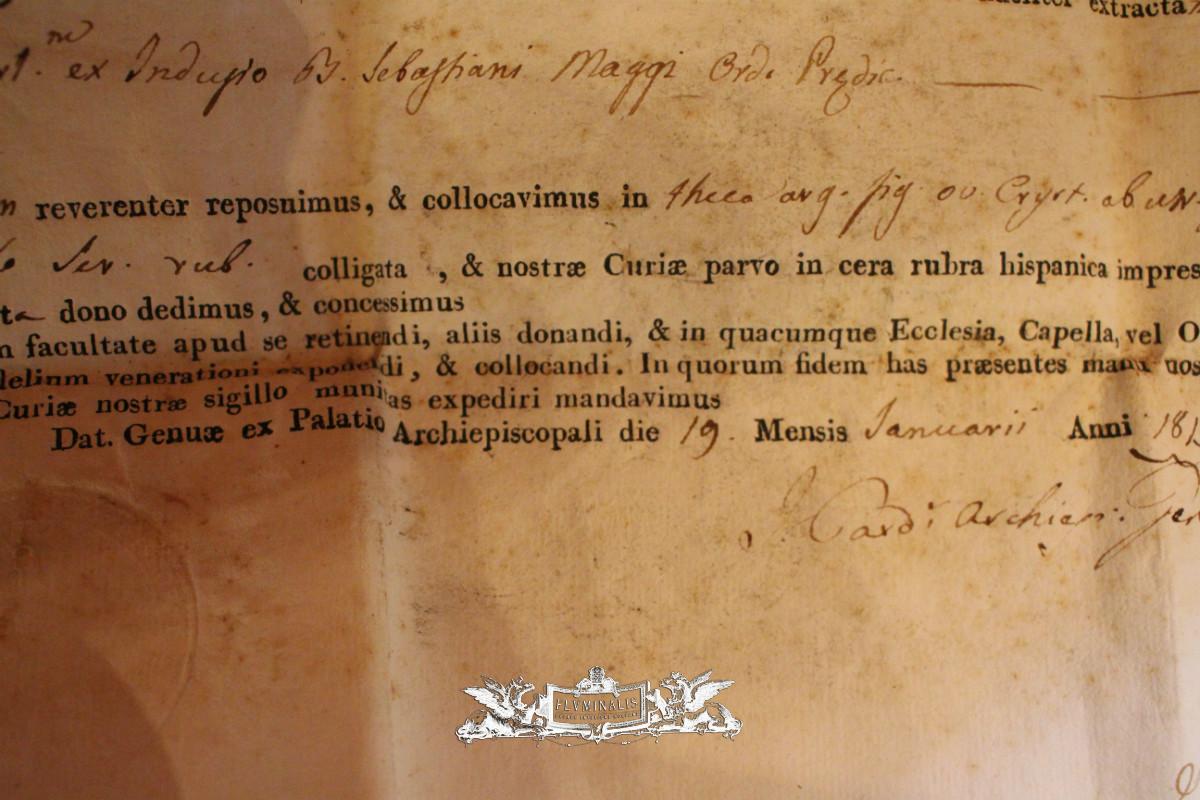 extracta
ex Indusio B. Sebastiani Maggi Ord. Prędic.
reverenter reposuimus, & collocavimus in theca arg. fig ov. Cryst. ab un
Ser. rub. colligata , & nostræ Curiæ parvo in cera rubra hispanica impres
dono dedimus, & concessimus
facultate apud se retinendi, aliis donandi, & in quacumque Ecclesia, Capella, vel O
delium venerationi exponendi, & collocandi. In quorum fidem has præsentes manu nos
Curiæ nostræ sigillo munitas expediri mandavimus
Dat. Genuæ ex Palatio Archiepiscopali die 19. Mensis Januarii Anni 18
Card. Archiep.
FLVMINALIS